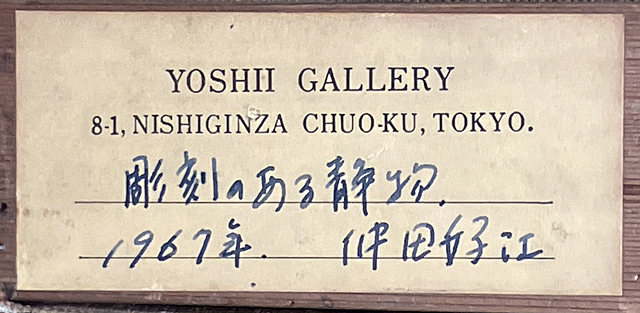 YOSHII GALLERY
8-1, NISHIGINZA CHUO-KU, TOKYO.
彫刻のある静物.
1967年. 仲田好江